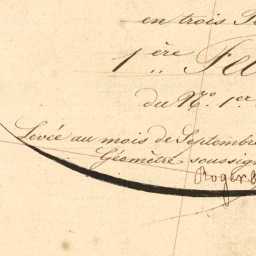 en trois
1ère
du No. 1er
Levée au mois de Septembre
Géomètre soussig
Roger